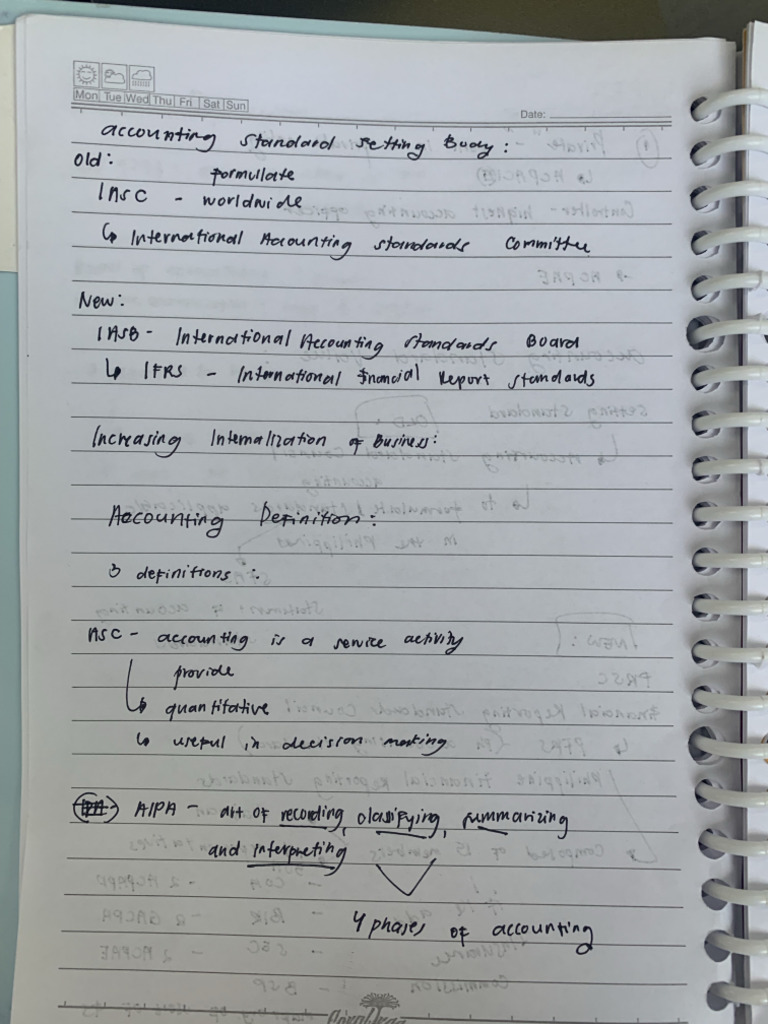 Mon Tue Wed Thu Fri Sat Sun
Date:
Accounting Standard Setting Body:
Old:
formulate
IASC - worldwide
↳ International Accounting Standards Committee
New:
IASB - International Accounting Standards Board
↳ IFRS - International Financial Report Standards
Increasing Internalization of Business:
Accounting Definition:
3 definitions:
ASC - accounting is a service activity
provide
↳ quantitative
↳ useful in decision making
AIPA - art of recording, classifying, summarizing
and interpreting
4 phases of accounting